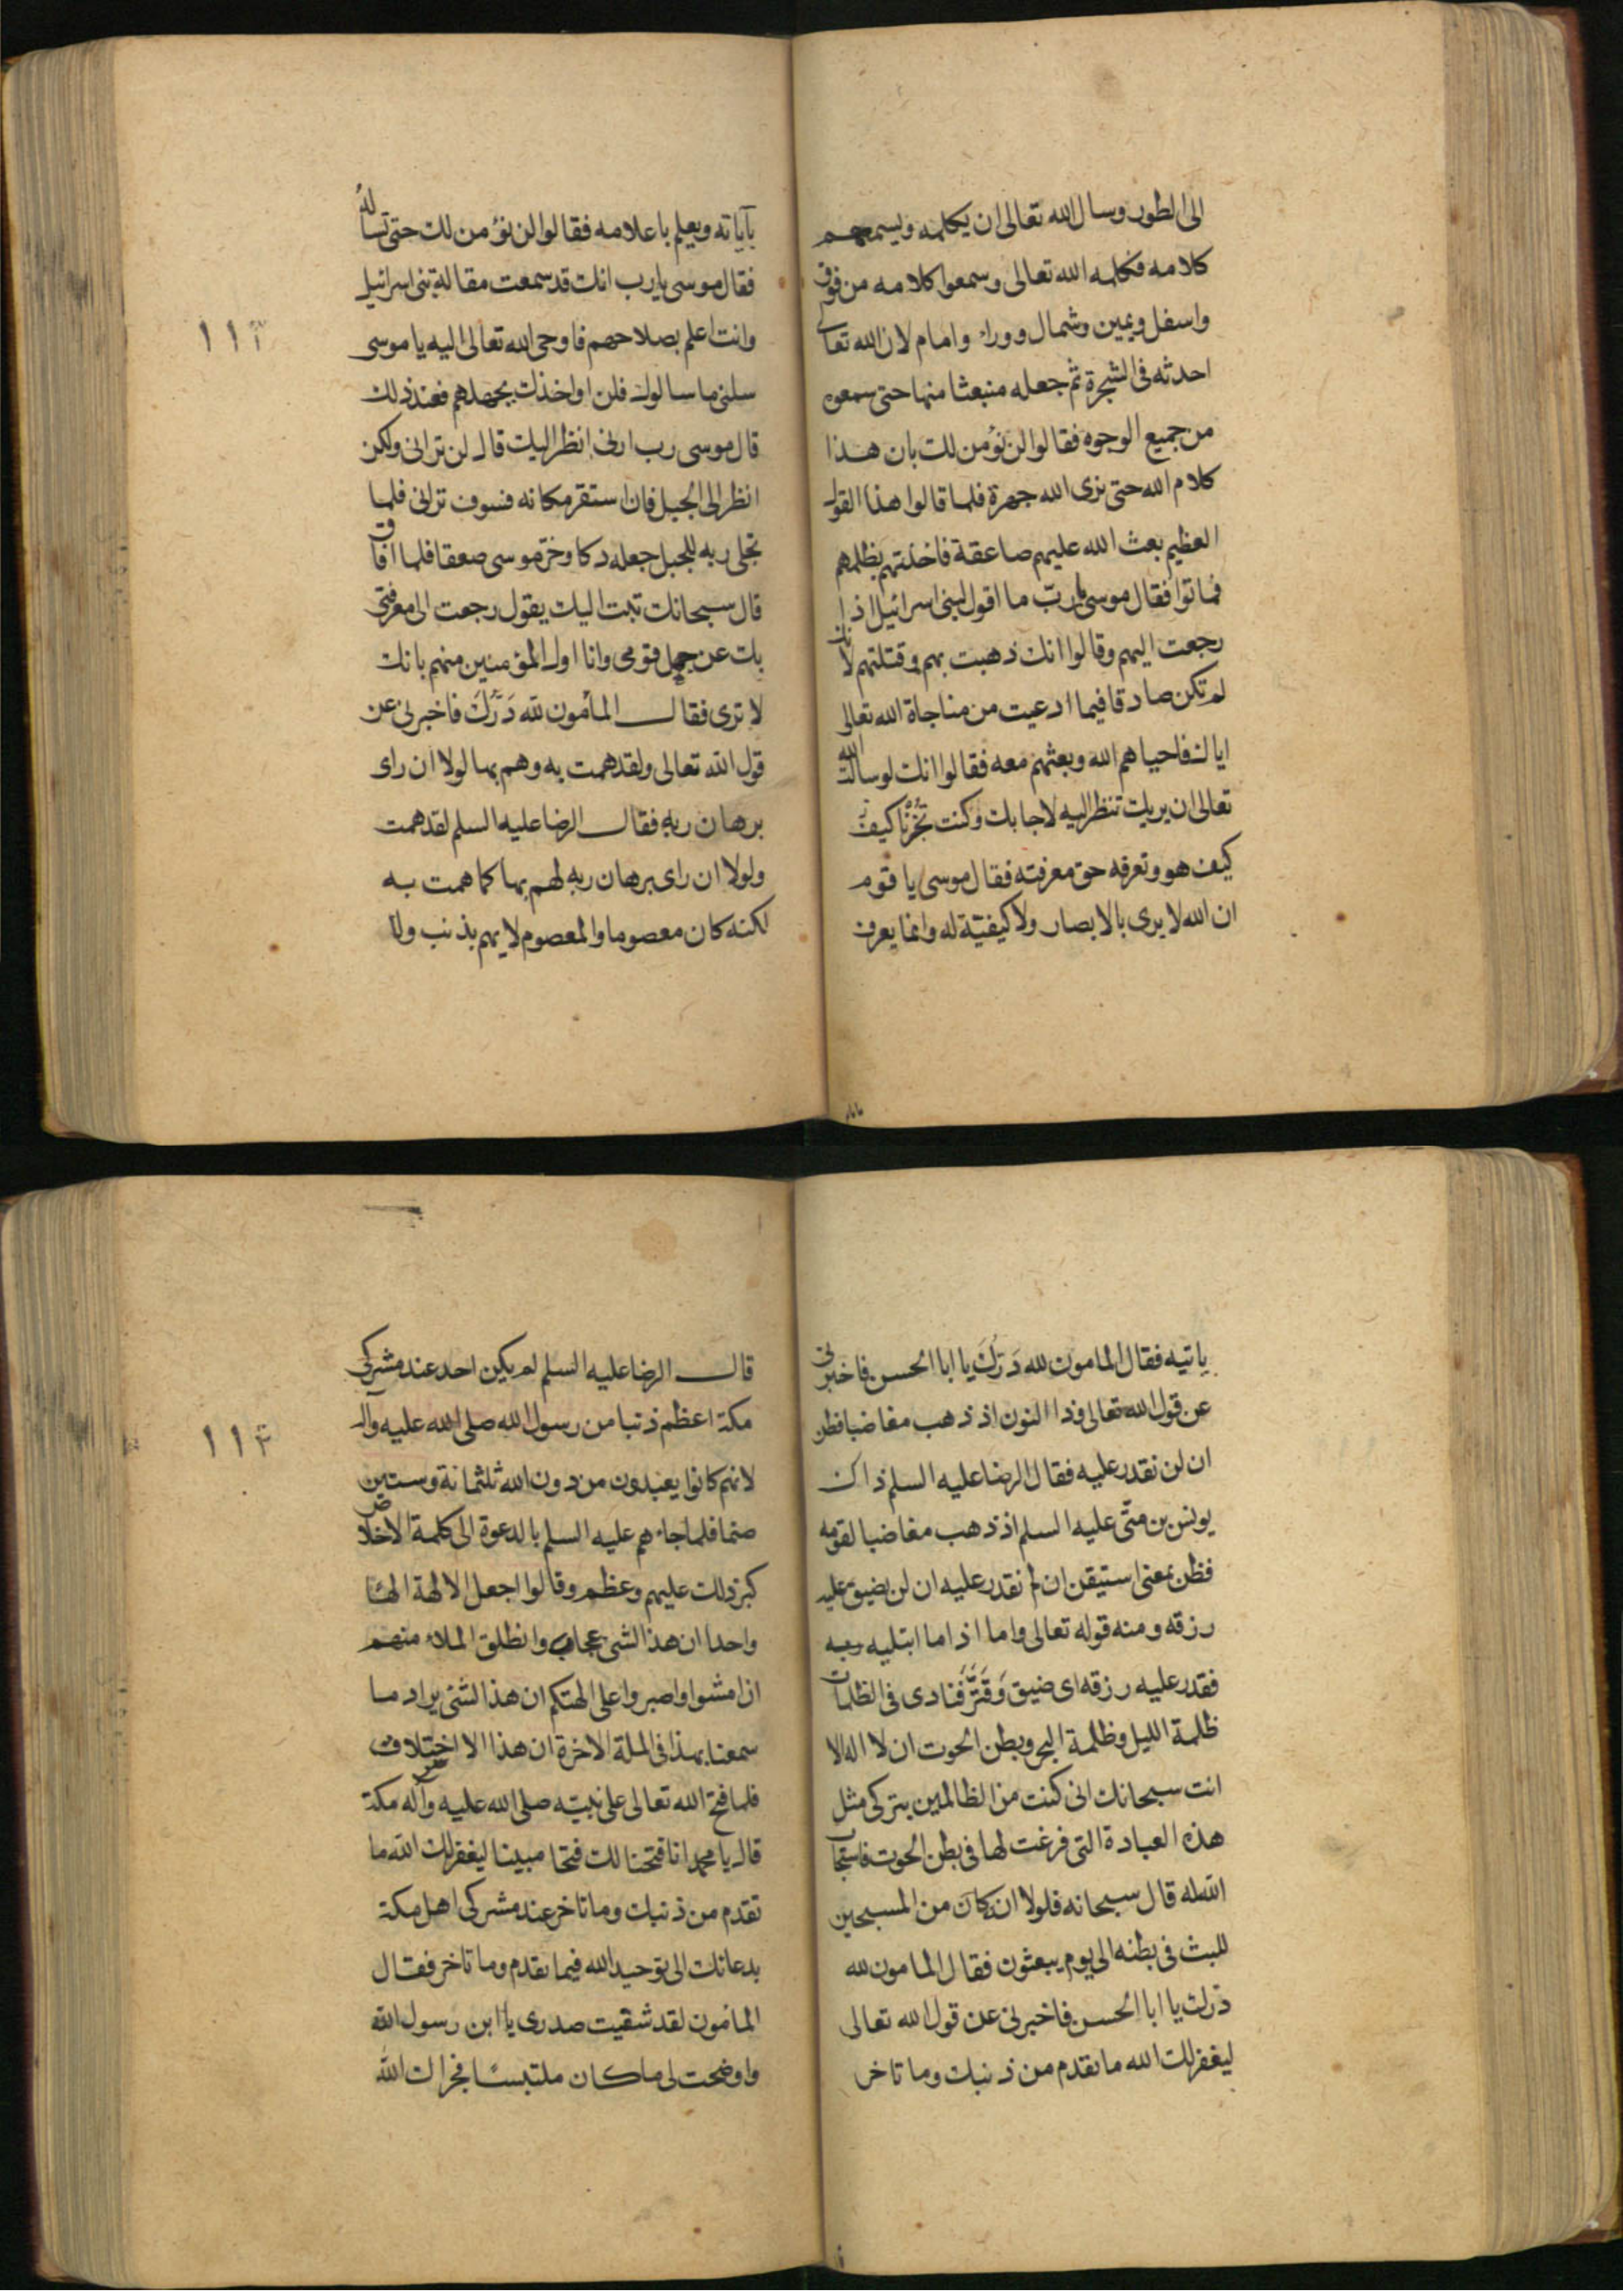 الى الطور وسال الله تعالى ان يكلمه ويسمعهم
كلامه فكلمه الله تعالى وسمعوا كلامه من فوق
واسفل ويمين وشمال ووراء وامام لان الله تعالى
احدثه فى الشجرة ثم جعله منبعثا منها حتى سمعوه
من جميع الوجوه فقالوا لن نؤمن لك بان هذا
كلام الله حتى نرى الله جهرة فلما قالوا هذا القول
العظيم بعث الله عليهم صاعقة فاخذتهم بظلمهم
فماتوا فقال موسى يا رب ما اقول لبنى اسرائيل اذا
رجعت اليهم وقالوا انك ذهبت بهم وقتلتهم لانك
لم تكن صادقا فيما ادعيت من مناجاة الله تعالى
اياك فاحياهم الله وبعثهم معه فقالوا انك لو سالت الله
تعالى ان يريك تنظر اليه لاجابك وكنت تخبرنا كيف
كيف هو ونعرفه حق معرفته فقال موسى يا قوم
ان الله لا يرى بالابصار ولا كيفيّة له وانما يعرف
بآياته ويعلم باعلامه فقالوا لن نؤمن لك حتى تساله
فقال موسى يا رب انك قد سمعت مقالة بنى اسرائيل
وانت اعلم بصلاحهم فاوحى الله تعالى اليه يا موسى
سلنى ما سالوك فلن اواخذك بجهلهم فعند ذلك
قال موسى رب ارنى انظر اليك قال لن ترانى ولكن
انظر الى الجبل فان استقر مكانه فسوف ترانى فلما
تجلى ربه للجبل جعله دكا وخرّ موسى صعقا فلما افاق
قال سبحانك تبت اليك يقول رجعت الى معرفتى
بك عن جهل قومى وانا اول المؤمنين منهم بانك
لا ترى فقال المأمون لله دَرُّكَ فاخبرنى عن
قول الله تعالى ولقد همت به وهم بها لولا ان راى
برهان ربه فقال الرضا عليه السلم لقد همت
ولولا ان راى برهان ربه لهم بها كما همت به
لكنه كان معصوما والمعصوم لا يهم بذنب ولا
١١٣
ياتيه فقال المامون لله دَرُّكَ يا ابا الحسن فاخبرنى
عن قول الله تعالى وذا النون اذ ذهب مغاضبا فظن
ان لن نقدر عليه فقال الرضا عليه السلم ذاك
يونس بن متّى عليه السلم اذ ذهب مغاضبا لقومه
فظن بمعنى استيقن ان لم نقدر عليه ان لن يضيق عليه
رزقه ومنه قوله تعالى واما اذا ما ابتليه ربه
فقدر عليه رزقه اى ضيق وَقَتَّرَ فنادى فى الظلمات
ظلمة الليل وظلمة البحر وبطن الحوت ان لا اله الا
انت سبحانك انى كنت من الظالمين بتركى مثل
هذه العبادة التى فرغت لها فى بطن الحوت فاستجاب
الله له قال سبحانه فلولا انه كان من المسبحين
للبث فى بطنه الى يوم يبعثون فقال المامون لله
درك يا ابا الحسن فاخبرنى عن قول الله تعالى
ليغفر لك الله ما تقدم من ذنبك وما تاخر
قال الرضا عليه السلم لم يكن احد عند مشركى
مكة اعظم ذنبا من رسول الله صلى الله عليه وآله
لانهم كانوا يعبدون من دون الله ثلثمائة وستين
صنما فلما جاءهم عليه السلم بالدعوة الى كلمة الاخلاص
كبر ذلك عليهم وعظم وقالوا اجعل الالهة الها
واحدا ان هذا لشى عجاب وانطلق الملاء منهم
ان امشوا واصبروا على الهتكم ان هذا لشئ يراد ما
سمعنا بهذا فى الملة الاخرة ان هذا الا اختلاق
فلما فتح الله تعالى على نبيّه صلى الله عليه وآله مكة
قال يا محمد انا فتحنا لك فتحا مبينا ليغفر لك الله ما
تقدم من ذنبك وما تاخر عند مشركى اهل مكة
بدعائك الى توحيد الله فيما تقدم وما تاخر فقال
المامون لقد شفيت صدرى يا ابن رسول الله
واوضحت لى ما كان ملتبسًا فجزاك الله
١١٤